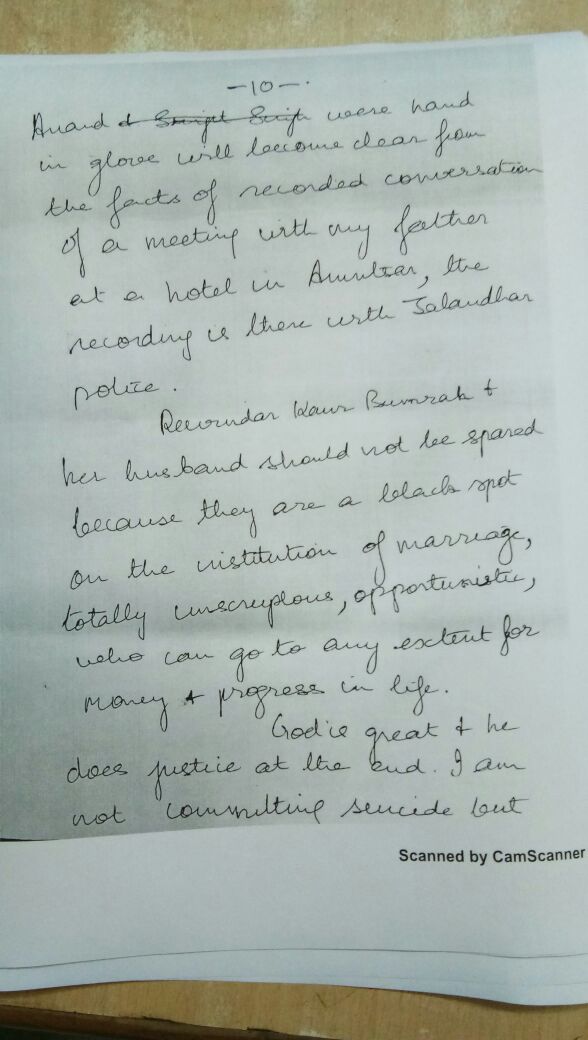 -10-.
Anand & Surjit Singh were hand
in glove will become clear from
the facts of recorded conversation
of a meeting with my father
at a hotel in Amritsar, the
recording is there with Jalandhar
police.
Kaur Bumrah &
her husband should not be spared
because they are a black spot
on the institution of marriage,
totally unscruplous, opportunistic,
who can go to any extent for
money & progress in life.
God is great & he
does justice at the end. I am
not committing suicide but
Scanned by CamScanner